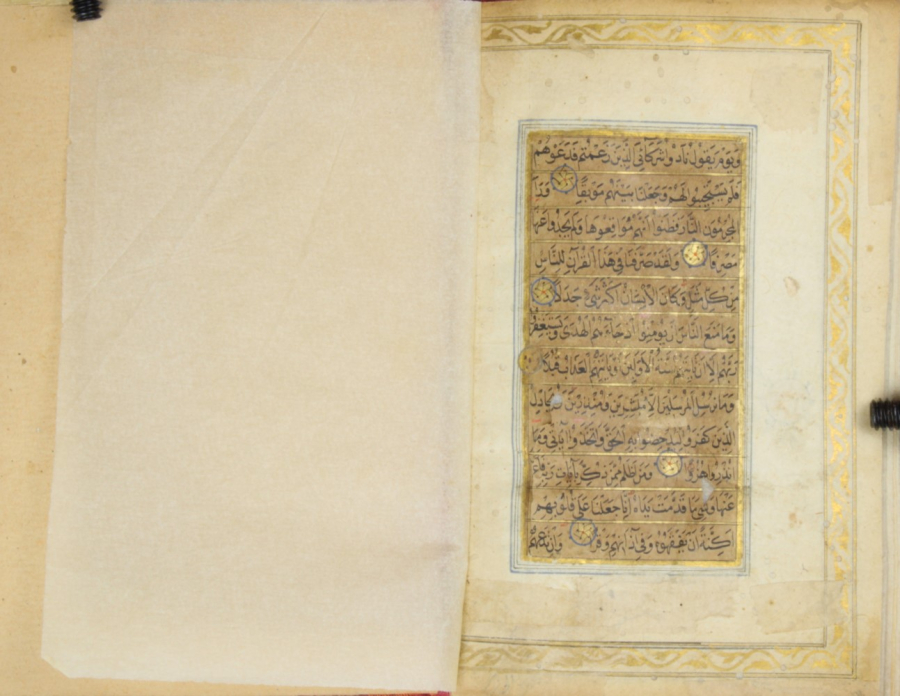 وَيَوْمَ يَقُولُ نَادُوا شُرَكَائِيَ الَّذِينَ زَعَمْتُمْ فَدَعَوْهُمْ
فَلَمْ يَسْتَجِيبُوا لَهُمْ وَجَعَلْنَا بَيْنَهُمْ مَوْبِقًا وَرَأَ
الْمُجْرِمُونَ النَّارَ فَظَنُّوا أَنَّهُمْ مُوَاقِعُوهَا وَلَمْ يَجِدُوا عَنْهَا
مَصْرِفًا وَلَقَدْ صَرَّفْنَا فِي هَذَا الْقُرْآنِ لِلنَّاسِ
مِنْ كُلِّ مَثَلٍ وَكَانَ الْإِنْسَانُ أَكْثَرَ شَيْءٍ جَدَلًا
وَمَا مَنَعَ النَّاسَ أَنْ يُؤْمِنُوا إِذْ جَاءَهُمُ الْهُدَى وَيَسْتَغْفِرُوا
رَبَّهُمْ إِلَّا أَنْ تَأْتِيَهُمْ سُنَّةُ الْأَوَّلِينَ أَوْ يَأْتِيَهُمُ الْعَذَابُ قُبُلًا
وَمَا نُرْسِلُ الْمُرْسَلِينَ إِلَّا مُبَشِّرِينَ وَمُنْذِرِينَ وَيُجَادِلُ
الَّذِينَ كَفَرُوا لِيُدْحِضُوا بِهِ الْحَقَّ وَاتَّخَذُوا آيَاتِي وَمَا
أُنْذِرُوا هُزُوًا وَمَنْ أَظْلَمُ مِمَّنْ ذُكِّرَ بِآيَاتِ رَبِّهِ فَأَعْرَضَ
عَنْهَا وَنَسِيَ مَا قَدَّمَتْ يَدَاهُ إِنَّا جَعَلْنَا عَلَى قُلُوبِهِمْ
أَكِنَّةً أَنْ يَفْقَهُوهُ وَفِي آذَانِهِمْ وَقْرًا وَإِنْ تَدْعُهُمْ